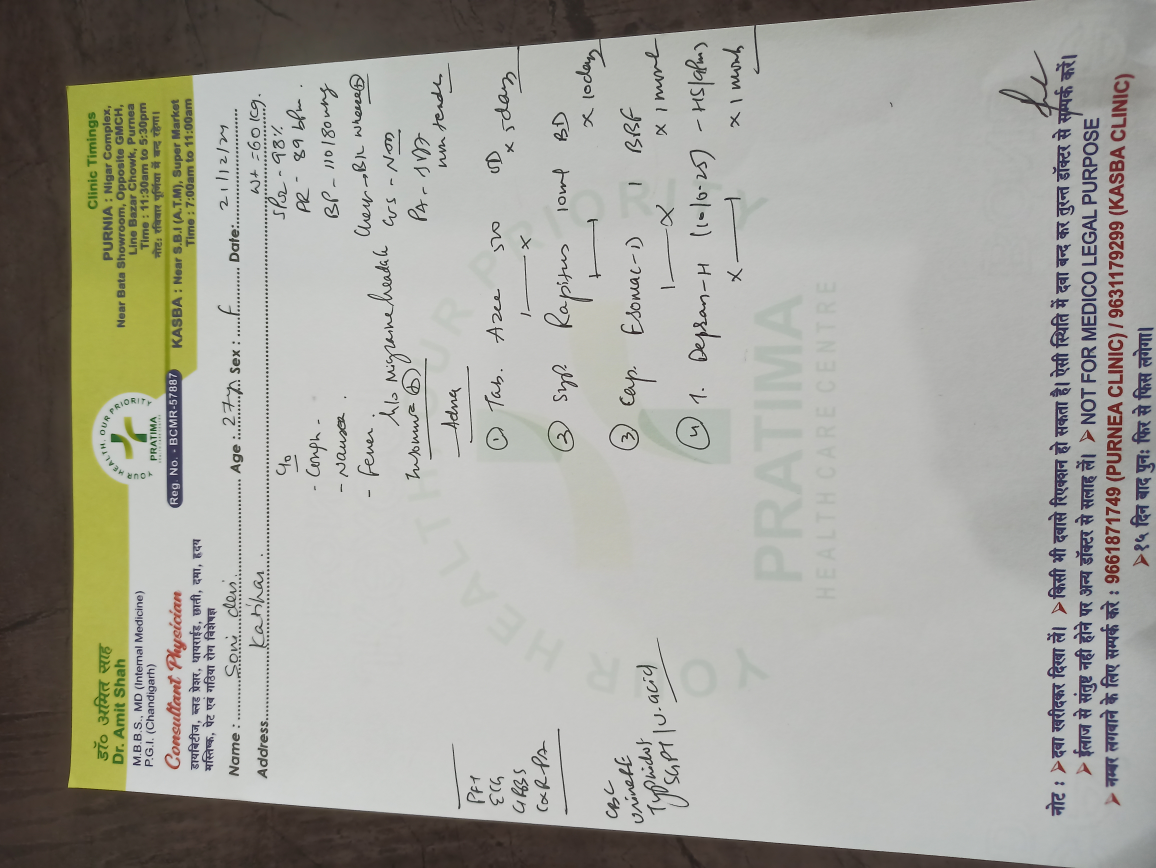 डॉ० अमित साह
Dr. Amit Shah
M.B.B.S., MD (Internal Medicine)
P.G.I. (Chandigarh)
Consultant Physician
डायबिटीज, ब्लड प्रेशर, थायराईड, छाती, दमा, हृदय
मस्तिष्क, पेट एवं गठिया रोग विशेषज्ञ
YOUR HEALTH, OUR PRIORITY
PRATIMA
Reg. No. - BCMR-57887
Clinic Timings
PURNIA : Nigar Complex,
Near Bata Showroom, Opposite GMCH,
Line Bazar Chowk, Purnea
Time : 11:30am to 5:30pm
नोट: रविवार पूर्णिया में बन्द रहेगा।
KASBA : Near S.B.I (A.T.M), Super Market
Time : 7:00am to 11:00am
Name : Soni devi Age : 27yr Sex : F Date: 21/12/24
Address Katihar. Wt = 60 kg.
C/o
SPO2 - 98%
- Cough -
PR - 89 bpm.
- Nausea.
BP - 110/80 mmg
- Fever
H/o Migraine headache
Chest → B/L wheeze (+)
Insomnia (+)
CVS - Nom
PA - 
non tender
Adv
PFT
ECG
GRBS
CXR PA
① Tab. Azee 500 OD
1 — x x 5days
② Syp. Rapitus 10ml BD
x 10days
③ Cap. Esomac-D 1 BBF
1 — x x 1 month
④ T. Depran-H (10/0.25) - HS(9pm)
x — 1 x 1 month
CBC
Urine RE
Typhidot
SGPT / U.acid
YOUR HEALTH OUR PRIORITY
PRATIMA
HEALTHCARE CENTRE
नोट : ➤ दवा खरीदकर दिखा लें। ➤ किसी भी दवासे रिएक्शन हो सकता है। ऐसी स्थिति में दवा बन्द कर तुरन्त डॉक्टर से सम्पर्क करें।
➤ ईलाज से संतुष्ट नही होने पर अन्य डॉक्टर से सलाह लें। ➤ NOT FOR MEDICO LEGAL PURPOSE
➤ नम्बर लगवाने के लिए सम्पर्क करे : 9661871749 (PURNEA CLINIC) / 9631179299 (KASBA CLINIC)
➤ १५ दिन बाद पुनः फिर से फिस लगेगा।